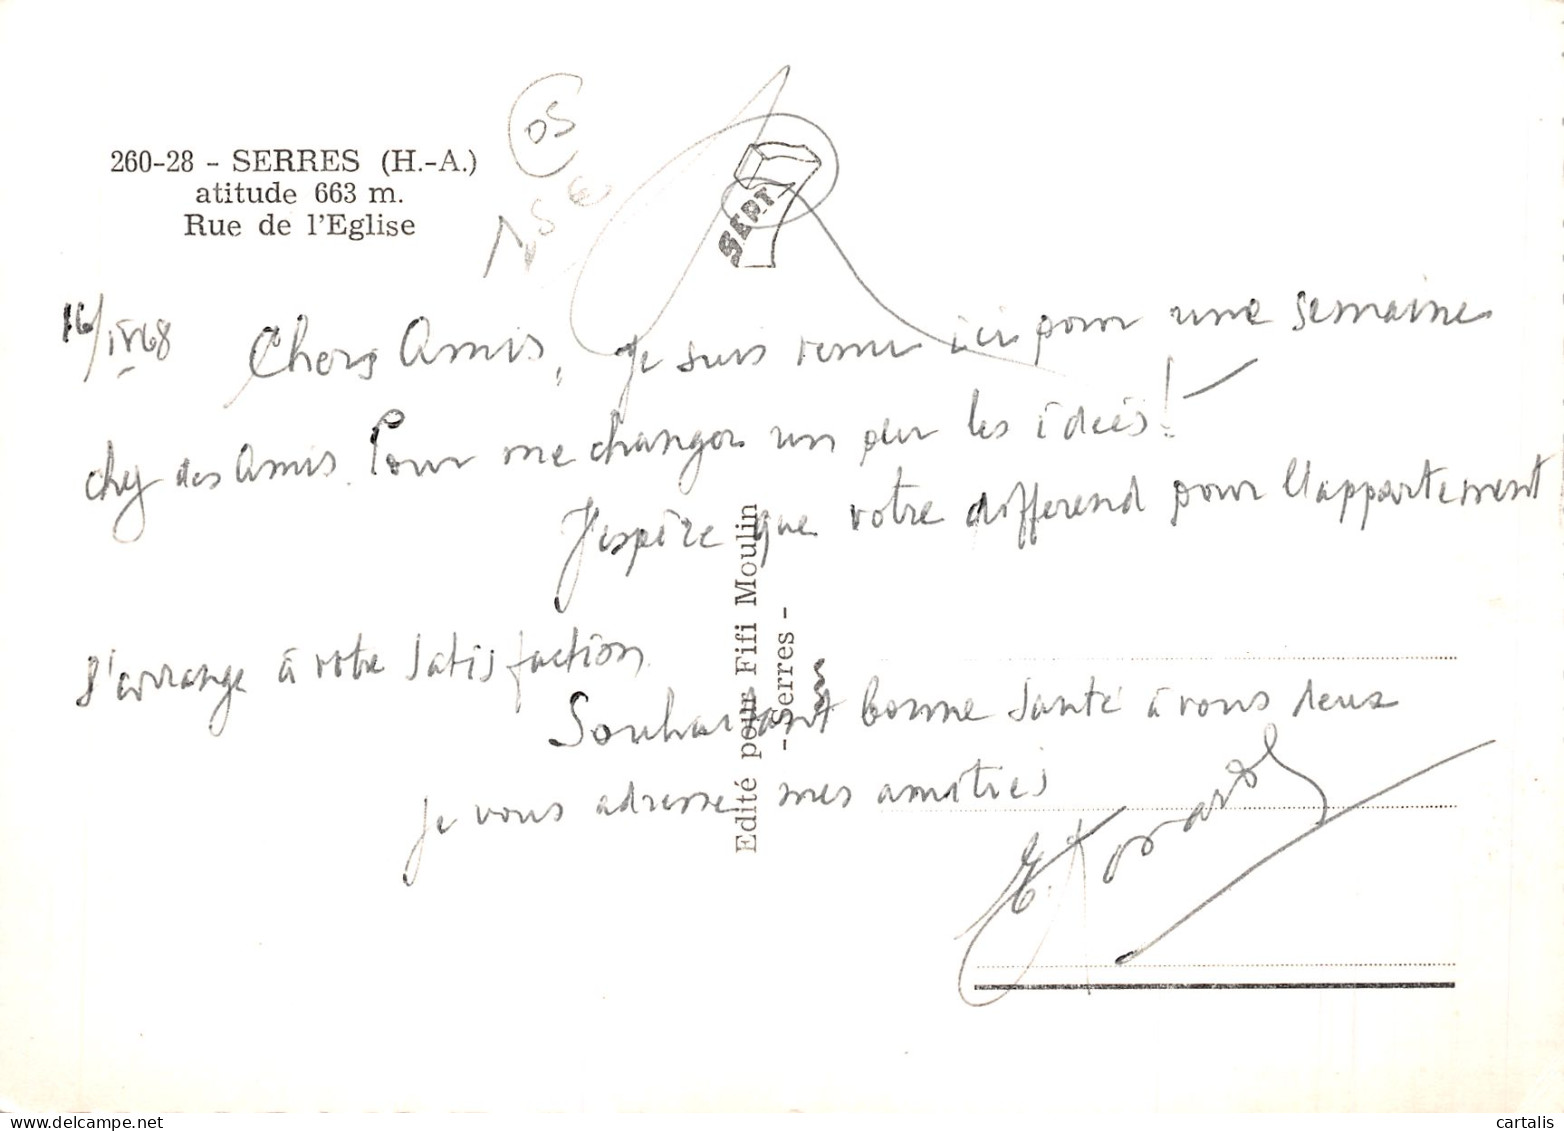 260-28 - SERRES (H.-A.)
atitude 663 m.
Rue de l'Eglise
05
1,5 €
SEPT
16/IV 68
Chers Amis, je suis venu ici pour une semaine
chez des amis. Pour me changer un peu les idées!
J'espère que votre differend pour l'appartement
s'arrange à votre satisfaction
Souhaitant bonne santé à vous deux
je vous adresse mes amitiés
Edité pour Fifi Moulin
- Serres -
cartalis
www.delcampe.net